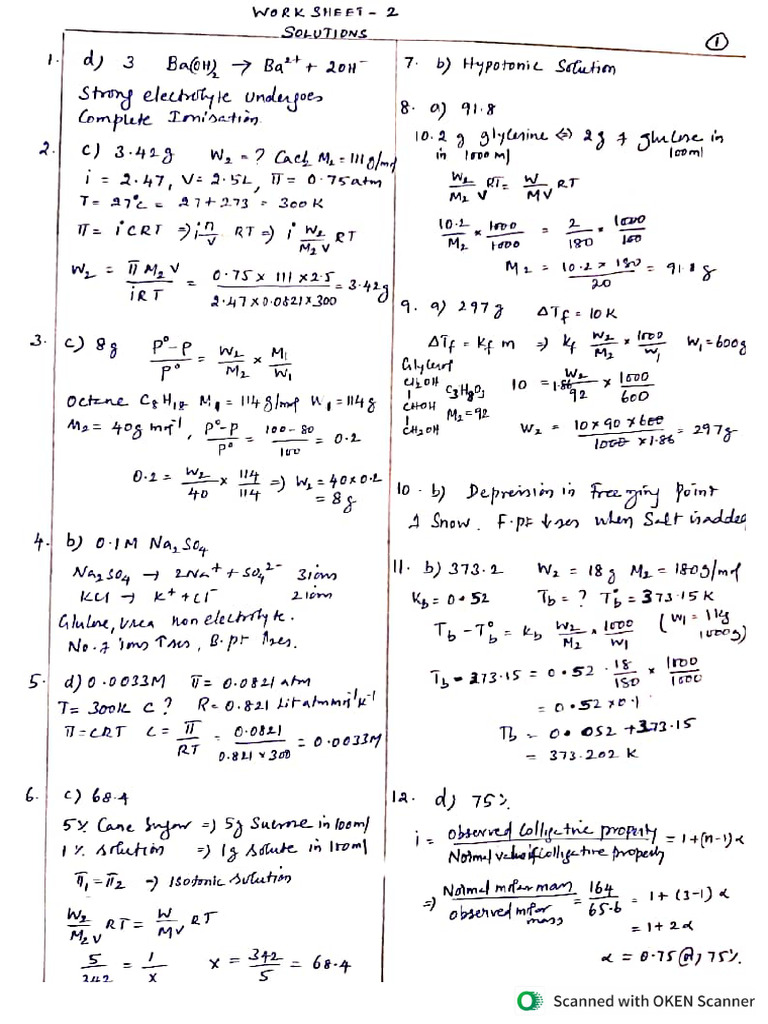 WORKSHEET - 2
SOLUTIONS
1
1. d) 3 Ba(OH)2 → Ba2+ + 2OH-
Strong electrolyte undergoes
Complete Ionisation.
2. c) 3.42g W2 = ? CaCl2 M2 = 111 g/mol
i = 2.47, V = 2.5L, π = 0.75 atm
T = 27°C = 27 + 273 = 300 K
π = iCRT ⇒ i n/V RT ⇒ i W2/M2V RT
W2 = π M2 V / iRT = 0.75 × 111 × 2.5 / 2.47 × 0.0821 × 300 = 3.42g
3. c) 8g P° - P / P° = W2/M2 × M1/W1
Octane C8H18 M1 = 114 g/mol W1 = 114 g
M2 = 40g mol-1, P° - P / P° = 100 - 80 / 100 = 0.2
0.2 = W2/40 × 114/114 ⇒ W2 = 40 × 0.2
= 8g
4. b) 0.1M Na2SO4
Na2SO4 → 2Na+ + SO4 2- 3 ions
KCl → K+ + Cl- 2 ions
Glucose, Urea non electrolyte.
No. of ions ↑ses, B.pt ↑ses.
5. d) 0.0033M π = 0.0821 atm
T = 300K C ? R = 0.821 Lit atm mol-1 K-1
π = CRT C = π/RT = 0.0821 / 0.821 × 300 = 0.0033M
6. c) 68.4
5% Cane Sugar ⇒ 5g Sucrose in 100ml
1% solution ⇒ 1g solute in 100ml
π1 = π2 → Isotonic solution
W2/M2V RT = W/MV RT
5/342 = 1/x x = 342/5 = 68.4
7. b) Hypotonic Solution
8. a) 91.8
10.2 g glycerine ⇔ 2g of glucose in
in 1000ml 100ml
W2/M2V RT = W/MV RT
10.2/M2 × 1000/1000 = 2/180 × 1000/100
M2 = 10.2 × 180 / 20 = 91.8 g
9. a) 297g ΔTf = 10K
ΔTf = Kf m ⇒ Kf W2/M2 × 1000/W1 W1 = 600g
Glycerol
CH2OH
CHOH
CH2OH
C3H8O3
M2 = 92
10 = 1.86 W2/92 × 1000/600
W2 = 10 × 90 × 600 / 1000 × 1.86 = 297g
10. b) Depression in Freezing Point
of Snow. F.pt ↓ses when Salt is added
11. b) 373.2 W2 = 18g M2 = 180g/mol
Kb = 0.52 Tb = ? T°b = 373.15 K
Tb - T°b = Kb W2/M2 × 1000/W1 (W1 = 1kg 1000g)
Tb - 373.15 = 0.52 · 18/180 × 1000/1000
= 0.52 × 0.1
Tb = 0.052 + 373.15
= 373.202 K
12. d) 75%
i = Observed Colligative property / Normal value of Colligative property = 1 + (n-1)α
⇒ Normal molar mass / observed molar mass = 164/65.6 = 1 + (3-1)α
= 1 + 2α
α = 0.75 (or) 75%.
Scanned with OKEN Scanner